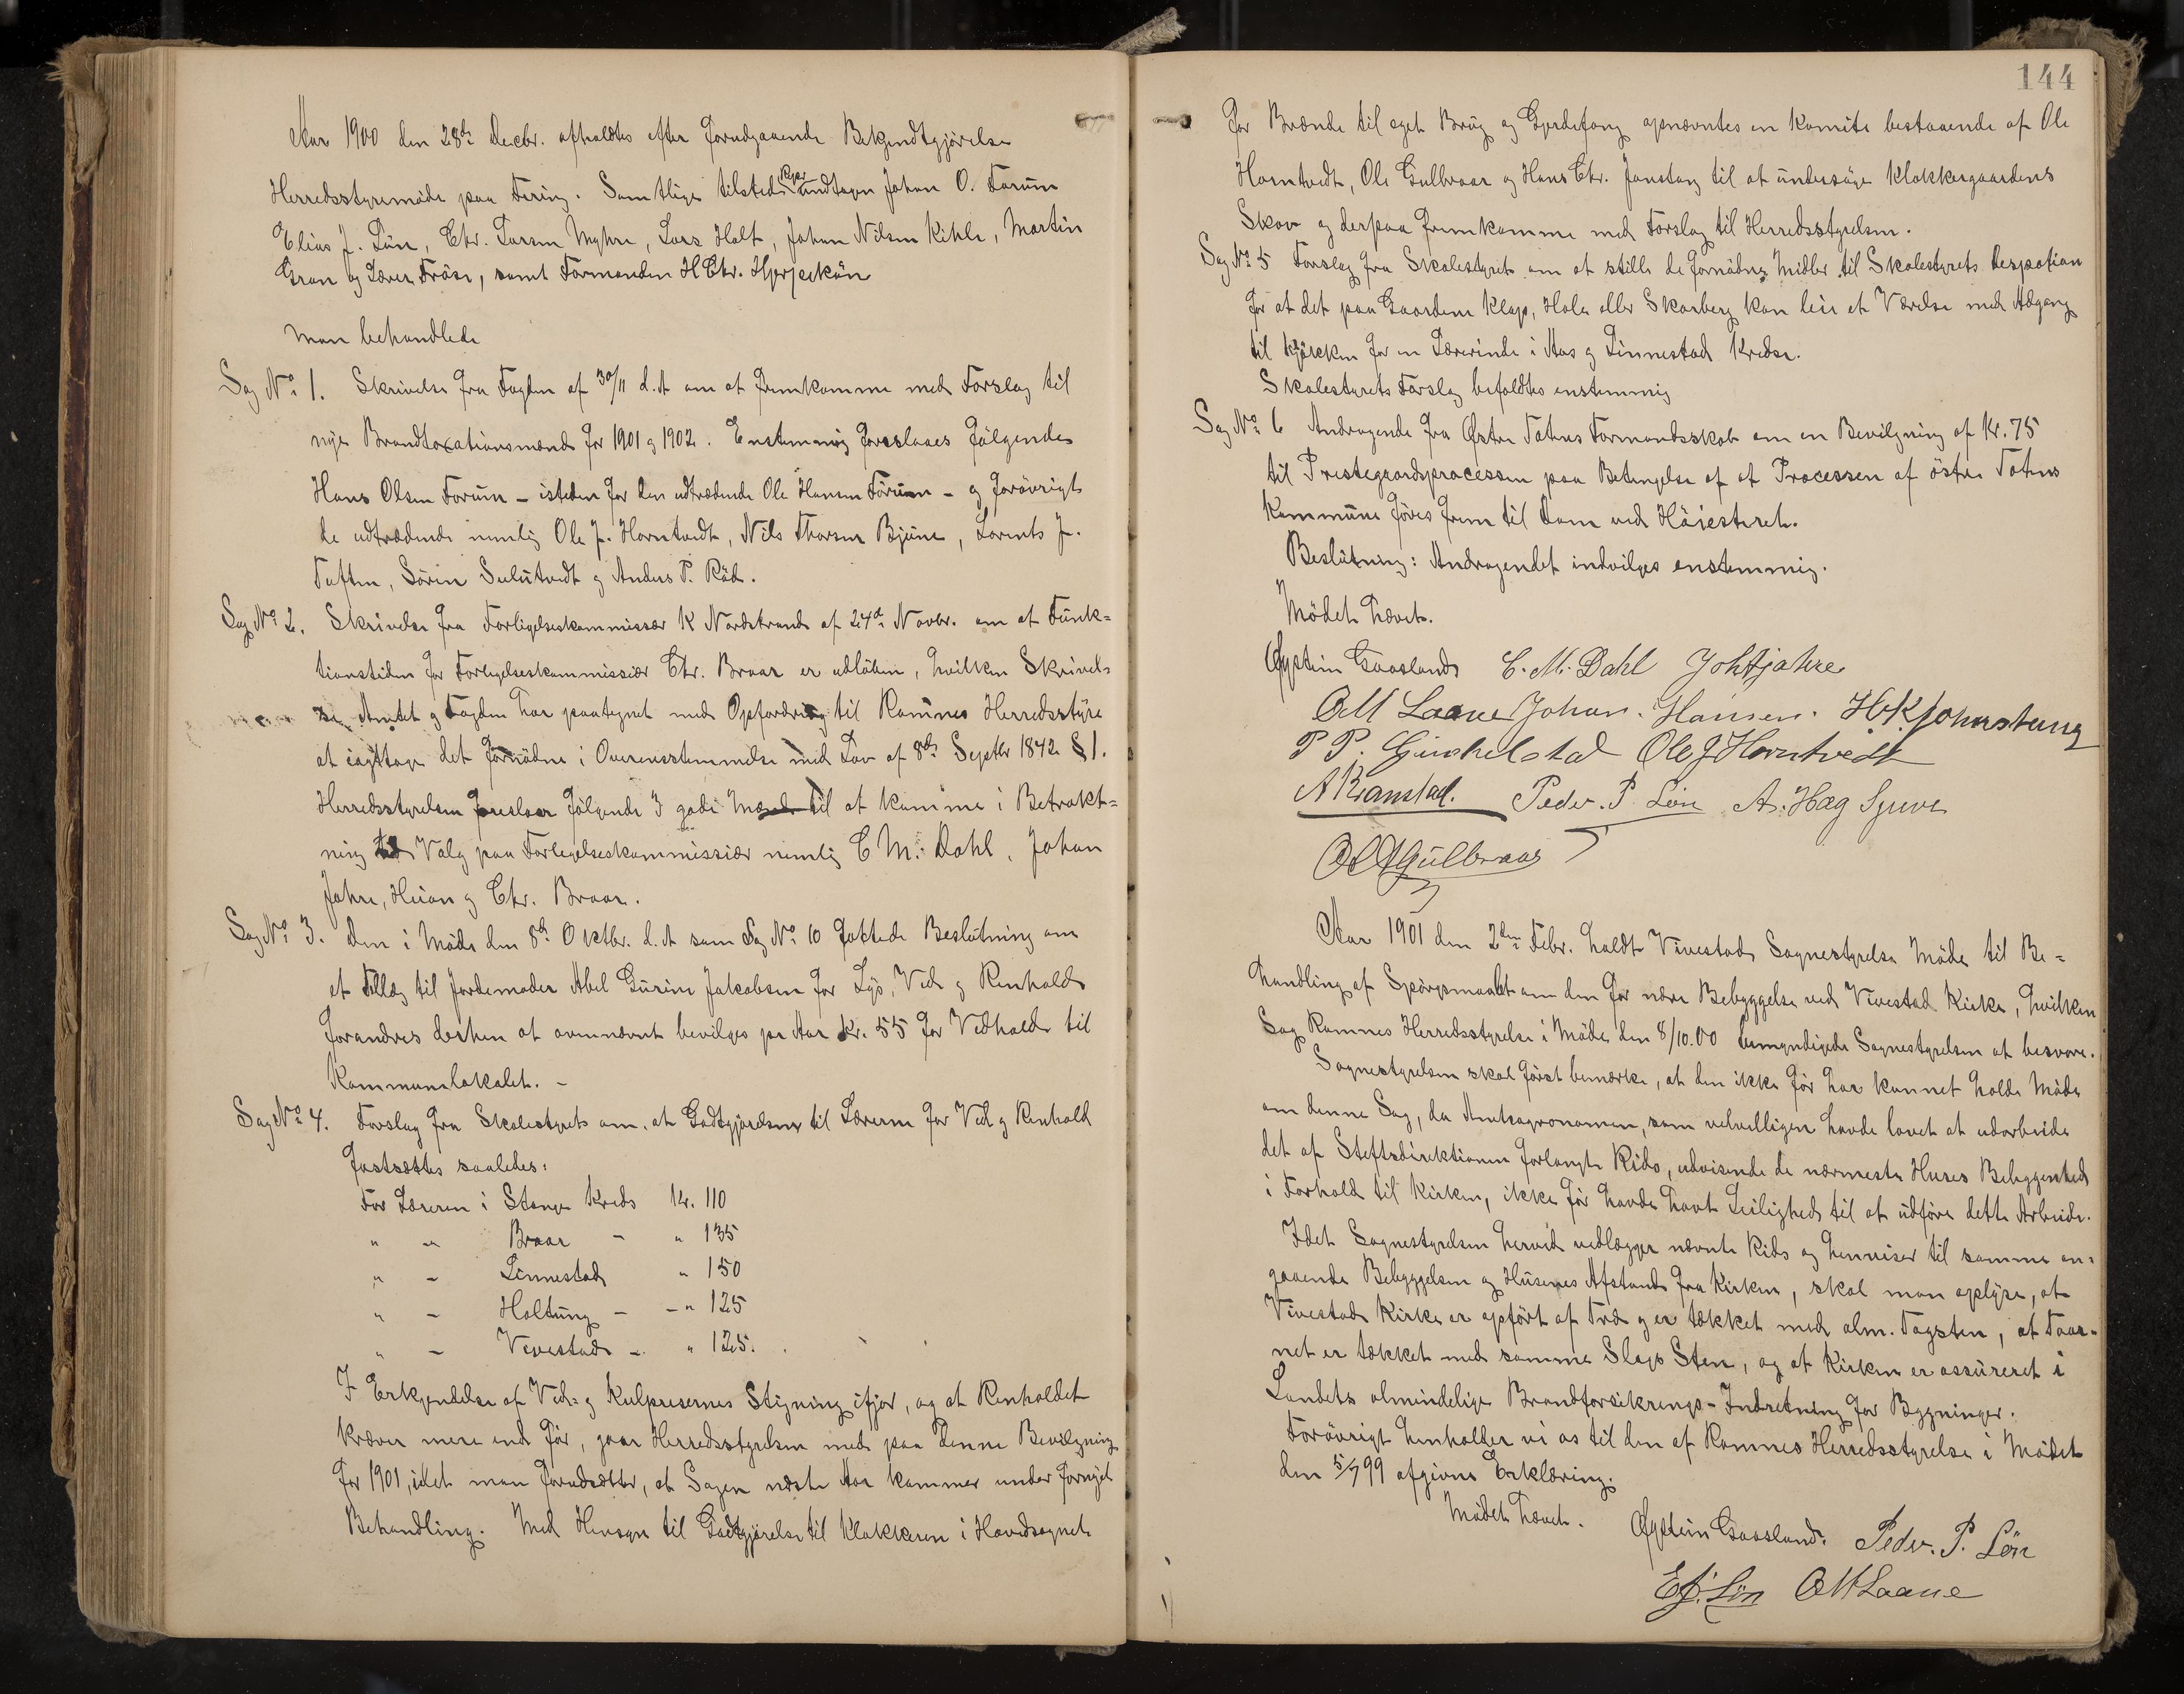 Aar 1900 den 28de Decbr. afholdtes efter forudgaaende Bekjendtgjörelse
Herredsstyremöde paa Fering. Samtlige tilstede Rpr undtagen Johan O. Forum
Elias J. Lön, Chr. Larsen Myhre, Lars Holt, Johan Nilsen Kihle, Martin
Gran og Lærer Fröse, samt Formanden H Chr.
Man behandlede
Sag No 1. Skrivelse fra Fogden af 30/11 d.A om at fremkomme med Forslag til
nye Brandtaxationsmænd for 1901 og 1902. Enstemmig foreslaaes fölgende
Hans Olsen Forum – isteden for den udtrædende Ole Hansen Forum – og forövrigt
de udtrædende nemlig Ole J. Horntvedt, Nils Thorsen Bjune, Lorents J.
Tuften, Sörin Sulutvedt og Anders P. Röd.
Sag No 2. Skrivelse fra Forligelseskommissær K Nordstrand af 24de Novbr. om at Funk-
tionstiden for Forligelseskommissiær Chr. Braar er udlöben, hvilken Skrivel-
se Amtet og Fogden har paategnet med Opfordring til Ramnes Herredsstyre
at iagttage det fornödne i Overensstemmelse med Lov af 8de Septbr 1842 § 1.
Herredsstyrelsen foreslaar fölgende 3 gode Mænd til at komme i Betrakt-
ning ved Valg paa Forligelseskommissiær nemlig C M. Dahl, Johan
Jahre, Huian og Chr. Braar.
Sag No 3. Den i Möde den 8de Oktbr. d.A som Sag No 10 fattede Beslutning om
et Tillæg til Jordemoder Abel Gurine Jakobsen for Lys, Ved og Renhold
forandres derhen at ovennævnt bevilges pr Aar Kr. 55 for Vedhold til
Kommunelokalet. –
Sag No 4. Forslag fra Skolestyret om at Godtgjörelsen til Lærerne for Ved og Renhold
fastsættes saaledes:
For Læreren i Stange Kreds Kr. 110
" – Braar – " 135
" – Linnestad " 150
" – Holtung – – " 125
" – Vivestad – " 125.
I Erkjendelse af Ved- og Kulprisernes Stigning ifjor, og at Renholdet
kræver mere end för, gaar Herredsstyrelsen med paa denne Bevilgning
for 1901, idet man forudsætter, at Sagen næste Aar kommer under fornyet
Behandling. Med Hensyn til Godtgjörelse til Klokkeren i Hovedsognet
144
for Brænde til eget Brug og Gjerdefang opnævntes en Komite bestaaende af Ole
Horntvedt, Ole Gulbraar og Hans Chr. Jonstang til at undersöge Klokkergaardens
Skov og derpaa fremkomme med Forslag til Herredsstyrelsen.
Sag No 5 Forslag fra Skolestyret om at stille de fornödne Midler til Skolestyrets Desposition
for at det paa Gaardene Klop, Hole eller Skarberg kan leie et Værelse med Adgang
til Kjökken for en Lærerinde i Aas og Linnestad Kredse.
Skolestyrets Forslag bifaldtes enstemmig
Sag No 6 Andragende fra Østre Totens Formandsskab om en Bevilgning af Kr. 75
til Prestegaardsprocessen paa Betingelse af at Processen af östre Totens
Kommune föres frem til Dom ved Höiesteret.
Beslutning: Andragendet indvilges enstemmig.
Mödet hævet.
Øystein Gaasland C. M. Dahl Joh Jahre
O M Laane Johan. Hansen. H K Johnstang
P P. Ole J Horntvedt
A Ramstad. Peder. P. Lön A. Hæg Sjuve
Ole Gulbraar
Aar 1901 den 2den Febr. holdt Vivestad Sognestyrelse Möde til Be-
handling af Spörgsmaalet om den for nære Bebyggelse ved Vivestad Kirke, hvilken
Sag Ramnes Herredsstyrelse i Möde den 8/10.00 bemyndigede Sognestyrelsen at besvare.
Sognestyrelsen skal först bemærke, at den ikke för har kunnet holde Möde
om denne Sag, da Amtsagronomen, som velvilligen havde lovet at udarbeide
det af Stiftsdirektionen forlangte Rids, udvisende de nærmeste Huses Beliggenhed
i Forhold til Kirken, ikke för havde havt Leilighed til at udföre dette Arbeide.
Idet Sognestyrelsen herved vedlægger nævnte Rids og henviser til samme an-
gaaende Bebyggelsen og Husenes Afstand fra Kirken, skal man oplyse, at
Vivestad Kirke er opfört af Træ og er tækket med alm. Tagsten, at Taar-
net er tækket med samme Slags Sten, og at Kirken er assureret i
Landets almindelige Brandforsikrings-Indretning for Bygninger.
Forövrigt henholder vi os til den af Ramnes Herredsstyrelse i Mödet
den 5/7 99 afgivne Erklæring.
Mödet hævet. Øystein Gaasland. Peder. P. Lön
E J. Lön O M Laane